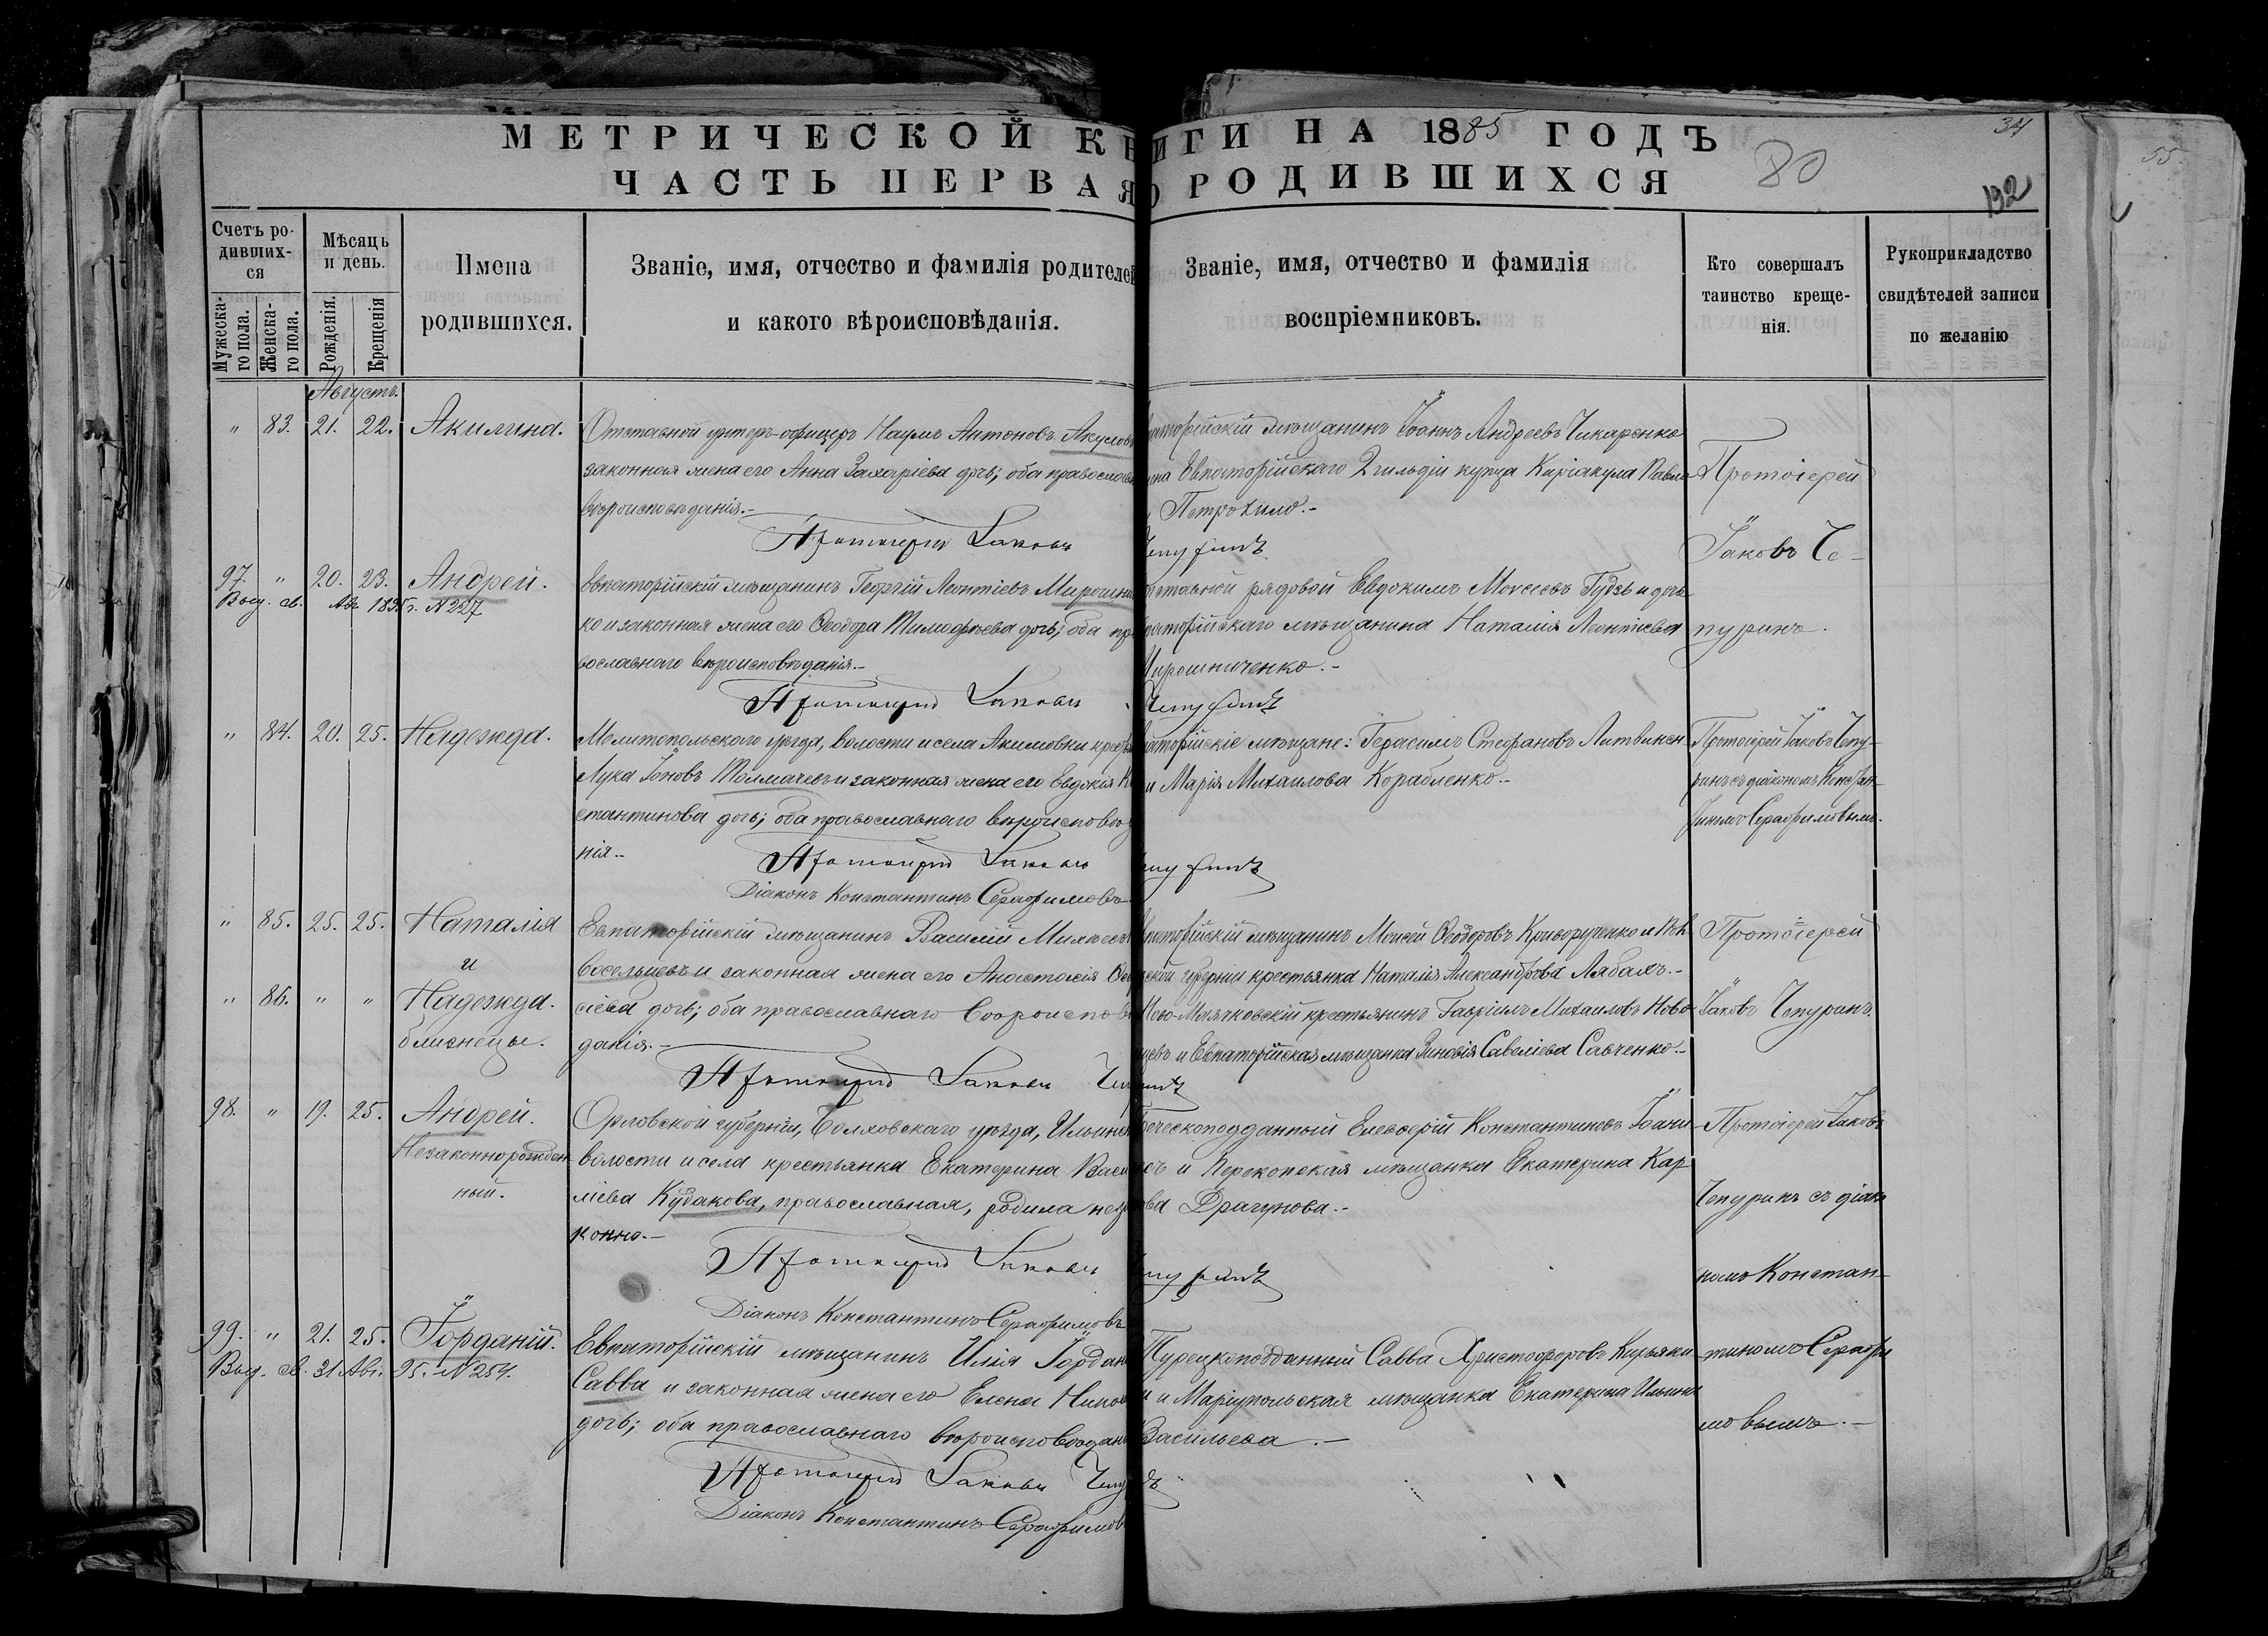 МЕТРИЧЕСКОЙ КН
ИГИ НА 1885 ГОДЪ
34
ЧАСТЬ ПЕРВАЯ
О РОДИВШИХСЯ
80
192
55.
Счетъ родивших-
ся
Мужеска-
го пола.
Женска-
го пола.
Мѣсяцъ
и день.
Рожденія.
Крещенія
Имена
родившихся.
Званіе, имя, отчество и фамилія родителей
и какого вѣроисповѣданія.
Званіе, имя, отчество и фамилія
воспріемниковъ.
Кто совершалъ
таинство креще-
нія.
Рукоприкладство
свидѣтелей записи
по желанію
Августъ.
" 83. 21. 22. Акилина.
Отставной унтеръ-офицеръ Наумъ Антоновъ Акуловъ
законная жена его Анна Захаріева дочь; оба православн
вѣроисповѣданія.-
Протоіерей Іаковъ
аторійскій мѣщанинъ Іоаннъ Андреевъ Чикаренко
Евпаторійскаго 2 гильдіи купца Киріакула Павло
Петрохило.-
Чепуринъ
Протоіерей
Іаковъ Че-
пуринъ.
97. " 20. 23. Андрей.
Выд. св. Авг. 1895 г. N 227
Евпаторійскій мѣщанинъ Георгій Леонтіевъ Мирошничен
ко и законная жена его Ѳеодора Тимофѣева дочь; оба пра
вославнаго вѣроисповѣданія.-
Протоіерей Іаковъ
тставной рядовой Евдокимъ Моѵсеевъ Гудзь и дочь
паторійскаго мѣщанина Наталія Леонтіева
Мирошниченко.-
Чепуринъ
" 84. 20. 25. Надежда.
Мелитопольскаго уѣзда, волости и села Акимовки крест
Лука Іоновъ Толмачевъ и законная жена его Евдокія Ко
стантинова дочь; оба православнаго вѣроисповѣда
нія.-
Протоіерей Іаковъ
Діаконъ Константинъ Серафимовъ
аторійскіе мѣщане: Герасимъ Стефановъ Литвинен
и Марія Михаилова Корабленко.-
Чепуринъ
Протоіерей Іаковъ Чепу-
ринъ съ діакономъ Констан-
тиномъ Серафимовымъ.
" 85. 25. 25. Наталія
и
" 86. " " Надежда.
близнецы.
Евпаторійскій мѣщанинъ Василій Михеевъ
восельцевъ и законная жена его Анастасія
сіева дочь; оба православнаго вѣроисповѣ
данія.-
Протоіерей Іаковъ Чепуринъ
паторійскій мѣщанинъ Моисей Ѳеодоровъ Криворученко и
ской губерніи крестьянка Наталія Александрова Лябахъ.-
Ново-Маячковскій крестьянинъ Гавріилъ Михаиловъ Ново
цевъ и Евпаторійская мѣщанка Зиновія Савеліева Савченко.-
Протоіерей
Іаковъ Чепуринъ.
98. " 19. 25. Андрей.
Незаконнорожден
ный.
Орловской губерніи, Болховскаго уѣзда, Ильинск
волости и села крестьянка Екатерина Васи
ліева Кудакова, православная, родила неза
конно.-
Протоіерей Іаковъ
Діаконъ Константинъ Серафимовъ
Греческоподданный Елевѳерій Константиновъ Іоанн
и Перекопская мѣщанка Екатерина Кар
ова Драгунова.-
Чепуринъ
Протоіерей Іаковъ
Чепуринъ съ діако
номъ Констан-
тиномъ Серафи
мовымъ.-
99. " 21. 25. Іорданій.
Выд. св. 31 Авг. 95. N 254.
Евпаторійскій мѣщанинъ Илія Іордан
Савва и законная жена его Елена Никол
дочь; оба православнаго вѣроисповѣдан
Протоіерей Іаковъ Чепуринъ
Діаконъ Константинъ Серафимов
Турецкоподданный Савва Христофоровъ Кирьяки
и Маріупольская мѣщанка Екатерина Ильина
Васильева.-